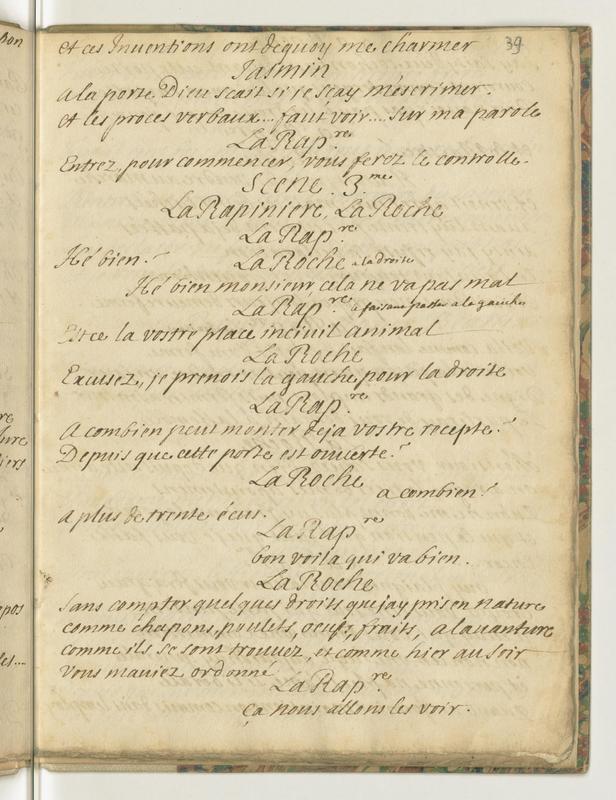 et ces Inventions ont dequoy me charmer
39
Jasmin
a la porte Dieu scait si je sçay m'escrimer.
et les proces verbaux... faut voir.... sur ma parole
La Rap.re
Entrez, pour commencer, vous ferez le controlle.
Scene. 3.me
La Rapiniere, La Roche
La Rap.re
Hé bien.?
La Roche a la droite
Hé bien monsieur cela ne va pas mal
La Rap.re le faisant passer a la gauche
Est ce la vostre place incivil animal
La Roche
Excusez, je prenois la gauche pour la droite
La Rap.re
A combien peut monter deja vostre recepte.?
Depuis que cette porte est ouverte.?
La Roche
a combien?
a plus de trente écus.
La Rap.re
bon voila qui va bien.
La Roche
sans compter quelques droits que jay pris en nature
comme chapons, poulets, oeufs, fruits, a lavanture
comme ils se sont trouvez, et comme hier au soir
vous maviez ordonné
La Rap.re
ça nous allons les voir.